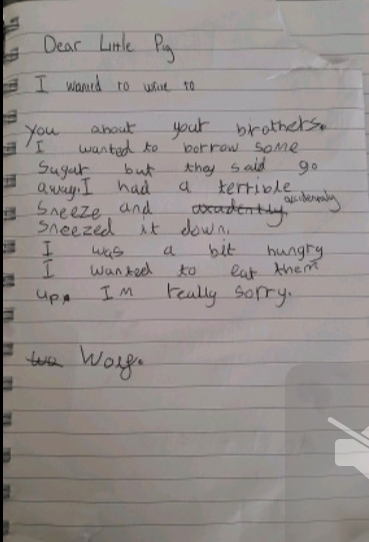 Dear Little Pig
I wanted to write to
you about your brothers.
I wanted to borrow some
Sugar but they said go
away. I had a terrible
Sneeze and axadently accidentally
Sneezed it down.
I was a bit hungry
I wanted to eat them
up. I'm really sorry.
Wolf.